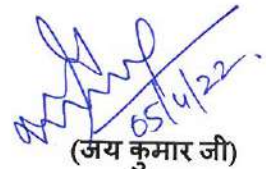 05/4/22
(जय कुमार जी)